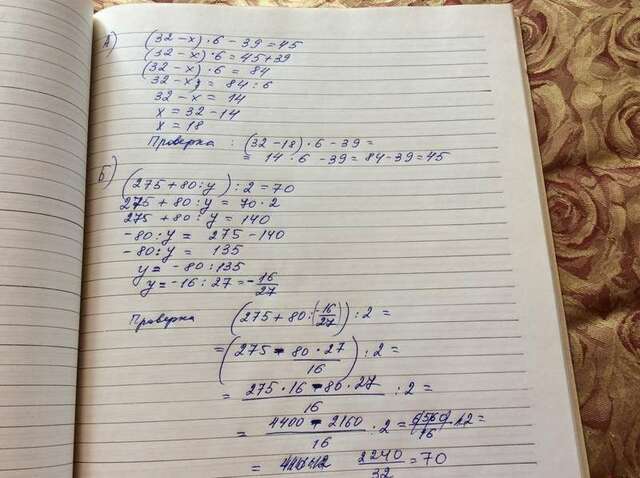 А)
(32 - x) · 6 - 39 = 45
(32 - x) · 6 = 45 + 39
(32 - x) · 6 = 84
32 - x = 84 : 6
32 - x = 14
x = 32 - 14
x = 18
Проверка : (32 - 18) · 6 - 39 =
= 14 · 6 - 39 = 84 - 39 = 45
Б)
(275 + 80 : y) : 2 = 70
275 + 80 : y = 70 · 2
275 + 80 : y = 140
-80 : y = 275 - 140
-80 : y = 135
y = -80 : 135
y = -16 : 27 = -16/27
Проверка (275 + 80 : (-16/27)) : 2 =
= (275 - 80 · 27/16) : 2 =
= 275 · 16 - 80 · 27/16 : 2 =
= 4400 - 2160/16 : 2 = 6560/16 · 12 =
= 2240/32 = 70